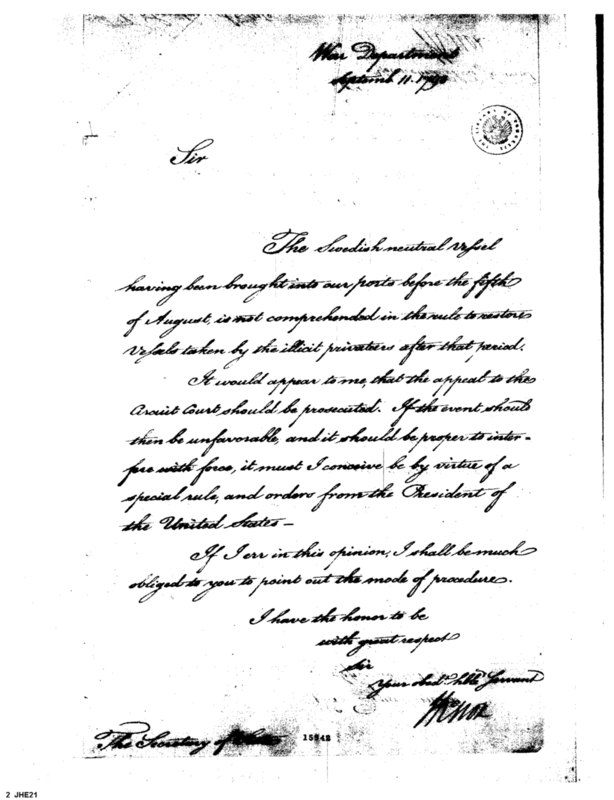 War Department
Septemb 11. 1793
Sir
The Swedish neutral Vessel
having been brought into our ports before the fifth
of August, is not comprehended in the rule to restore
Vessels taken by the illicit privatiers after that period.
It would appear to me, that the appeal to the
Circuit Court should be prosecuted. If the event should
then be unfavorable, and it should be proper to inter-
fere with force, it must I conceive be by virtue of a
special rule, and orders from the President of
the United States —
If I err in this opinion, I shall be much
obliged to you to point out the mode of procedure.
I have the honor to be
with great respect
Sir
Your obed. hble Servant
HKnox
The Secretary of State
15942
2 JHE21